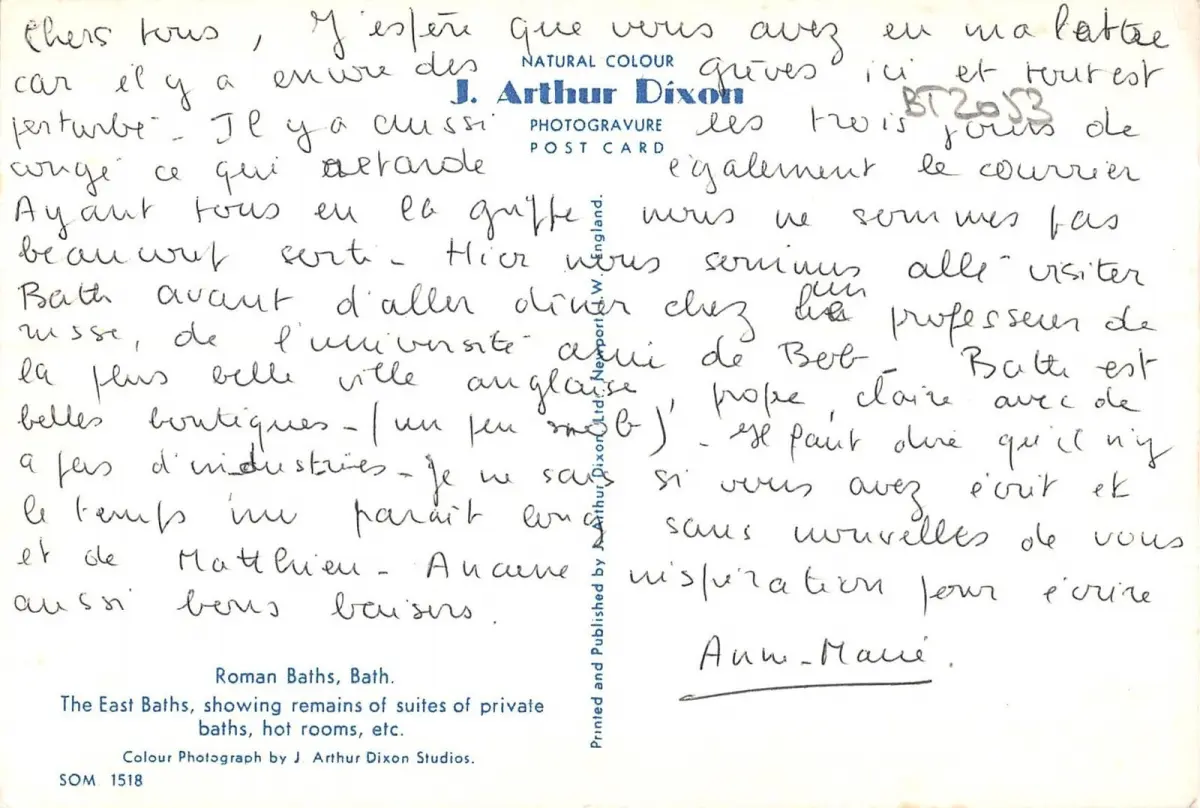 Chers tous, J'espère que vous avez eu ma lettre
NATURAL COLOUR
car il y a encore des grèves ici et tout est
J. Arthur Dixon
BT2053
perturbé - Il y a aussi les trois jours de
PHOTOGRAVURE
POST CARD
congé ce qui retarde également le courrier
Ayant tous eu la grippe nous ne sommes pas
beaucoup sorti - Hier nous sommes allé visiter
Bath avant d'aller dîner chez un professeur de
russe, de l'université ami de Bob - Bath est
la plus belle ville anglaise, propre, claire avec de
belles boutiques - (un peu snob) - Il faut dire qu'il n'y
a pas d'industries - Je ne sais si vous avez écrit et
le temps me paraît long sans nouvelles de vous
et de Matthieu - Aucune inspiration pour écrire
aussi bons baisers.
Anne-Marie.
Roman Baths, Bath.
The East Baths, showing remains of suites of private
baths, hot rooms, etc.
Colour Photograph by J Arthur Dixon Studios.
SOM 1518
Printed and Published by J. Arthur Dixon Ltd. Newport I.W. England.